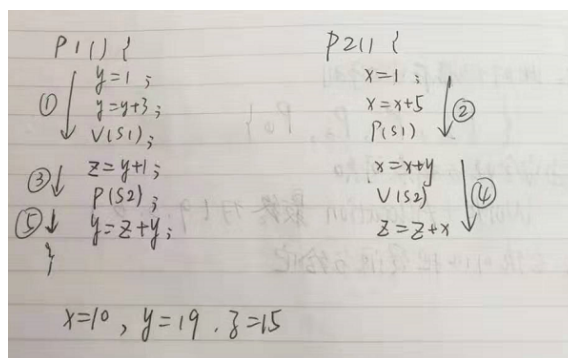 P1() {
y=1;
① y=y+3;
V(S1);
③ z=y+1;
P(S2);
⑤ y=z+y;
}
P2() {
x=1;
x=x+5 ②
P(S1)
x=x+y
V(S2) ④
z=z+x
x=10, y=19. z=15